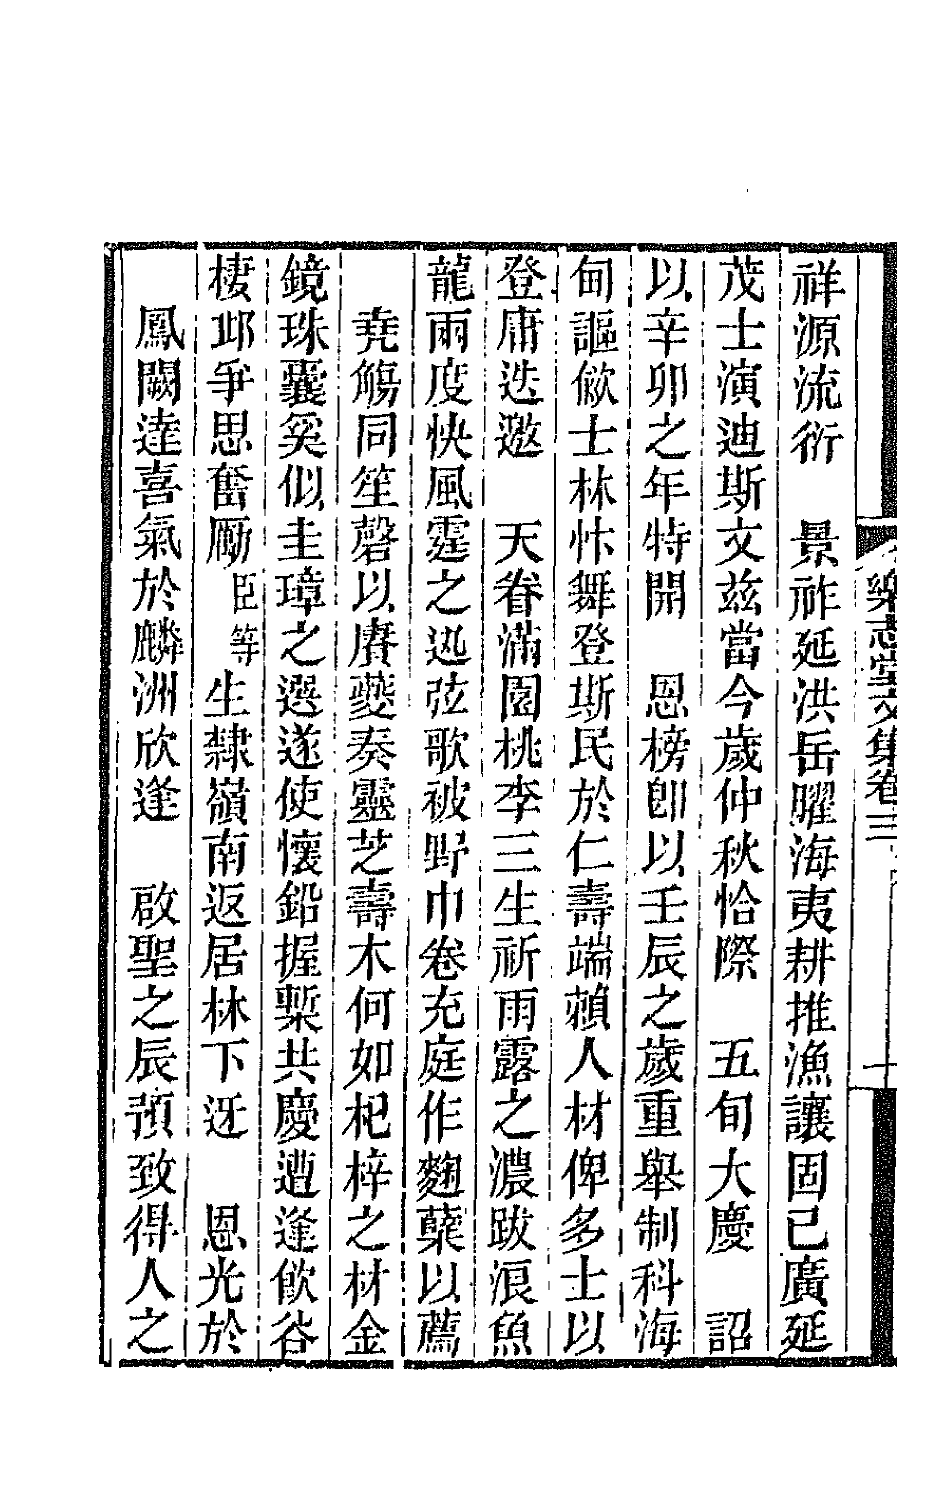 樂志堂文集卷三
十
祥源流衍　景祚延洪岳曜海夷耕推漁讓固已廣延
茂士演迪斯文兹當今歲仲秋恰際　五旬大慶　詔
以辛卯之年特開　恩榜卽以壬辰之歲重舉制科海
甸謳歈士林忭舞登斯民於仁壽端賴人材俾多士以
登庸迭邀　天眷滿園桃李三生祈雨露之濃跋浪魚
龍兩度快風霆之迅弦歌被野巾卷充庭作麴糵以薦
　堯觴同笙磬以賡夔奏靈芝壽木何如杞梓之材金
鏡珠囊奚似圭璋之選遂使懷鉛握槧共慶遭逢飲谷
棲邱爭思奮勵臣等生隸嶺南返居林下迓　恩光於
　鳳闕達喜氣於麟洲欣逢　啟聖之辰預致得人之